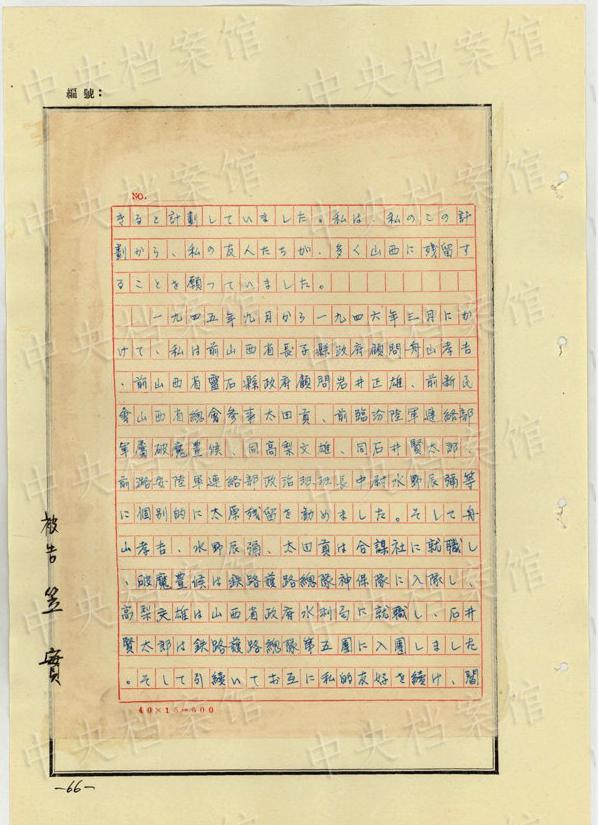 編號：
NO.
きると計劃していました。私は、私のこの計
劃から、私の友人たちが、多く山西に残留す
ることを願っていました。
一九四五年九月から一九四六年三月にか
けて、私は前山西省長子縣政府顧問舟山孝吉
、前山西省靈石縣政府顧問岩井正雄、前新民
會山西省總會参事太田貢、前臨汾陸軍連絡部
軍属破魔豊候、同高梨文雄、同石井賢太郎、
前潞安陸軍連絡部政治班班長中尉水野辰彌等
に個別的に太原残留を勧めました。そして舟
山孝吉、水野辰彌、太田貢は合謀社に就職し
、破魔豊候は鉄路護路總隊神保隊に入隊し、
高梨文雄は山西省政府水利局に就職し、石井
賢太郎は鉄路護路總隊第五團に入團しました
。そして引續いてお互に私的友好を続け、閻
40×15=600
被告 笠 實
—66—
中央档案馆